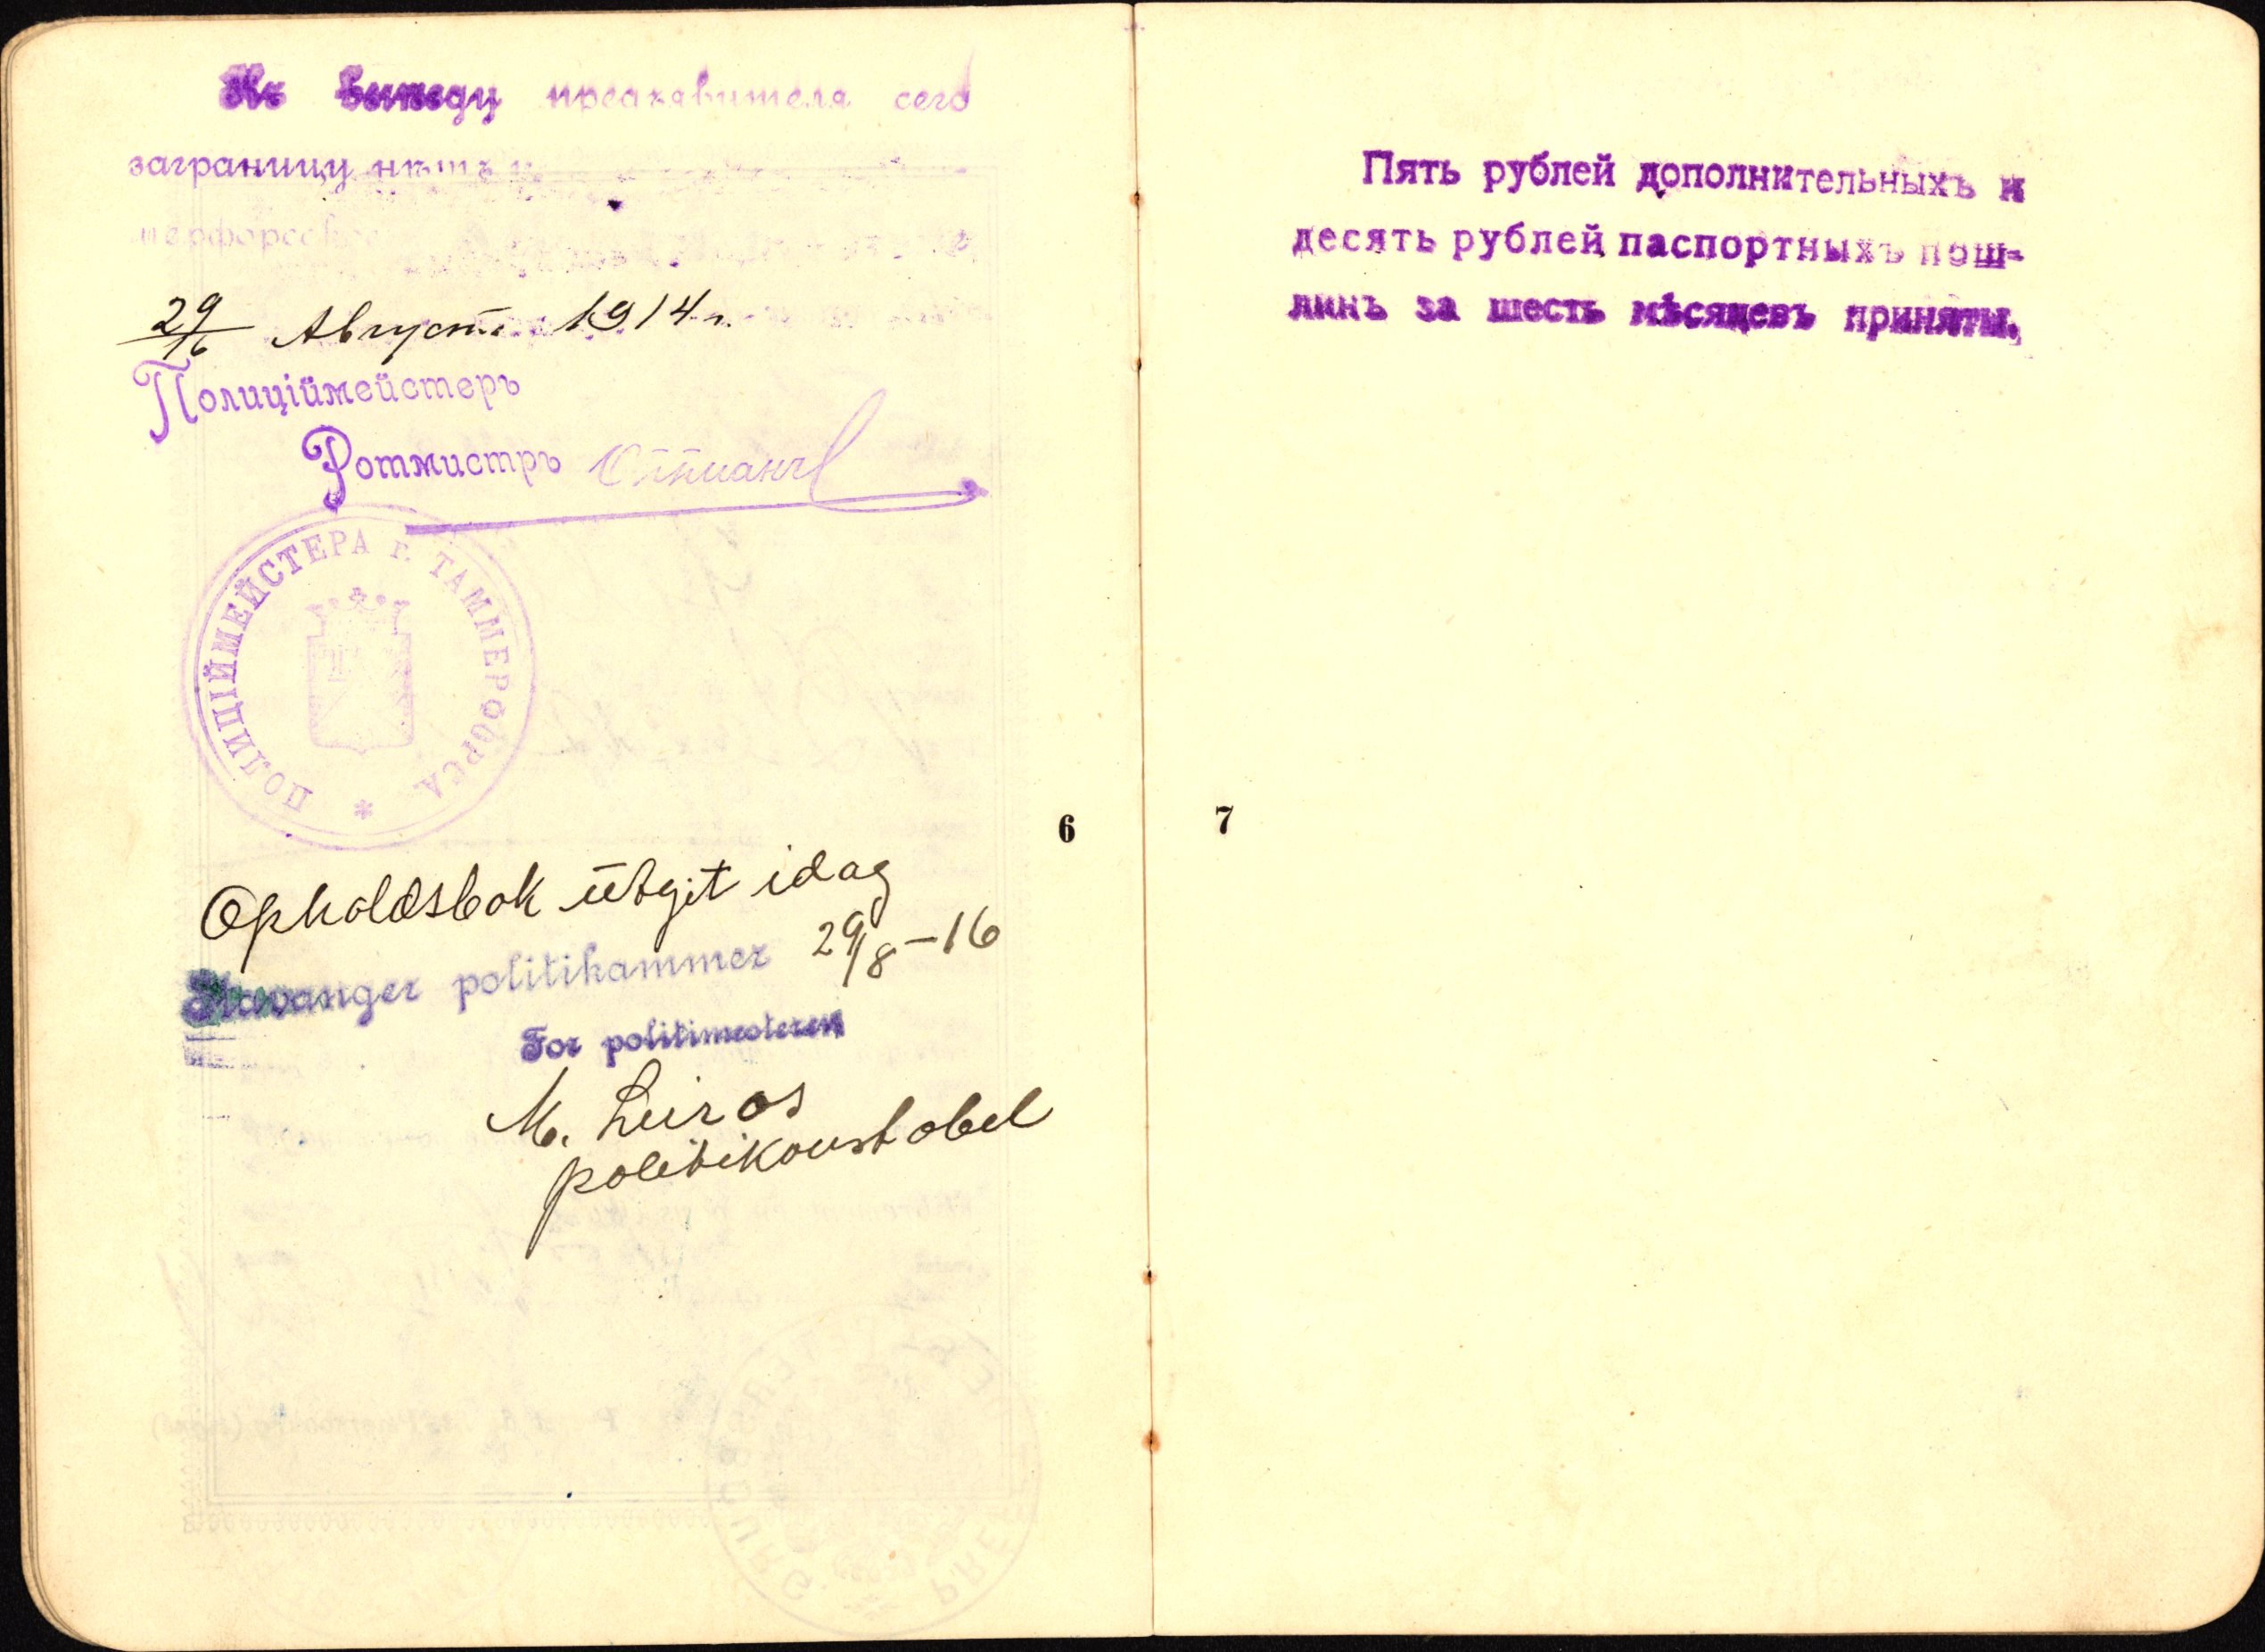 Къ выезду предъявителя сего
заграницу
29/16 Августа 1914 г.
Полиціймейстеръ
Ротмистръ
ПОЛИЦІЙМЕЙСТЕРА Г. ТАММЕРФОРСА *
Opholdsbok utgit idag
Stavanger politikammer 29/8-16
For politimesteren
M. Leiros
politikonstabel
6
Пять рублей дополнительныхъ и
десять рублей паспортныхъ пош-
линъ за шесть мѣсяцевъ приняты.
7